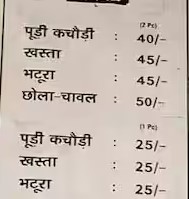 (2 Pc)
पूडी कचौड़ी : 40/-
खस्ता : 45/-
भटूरा : 45/-
छोला-चावल : 50/-
(1 Pc)
पूडी कचौड़ी : 25/-
खस्ता : 25/-
भटूरा : 25/-